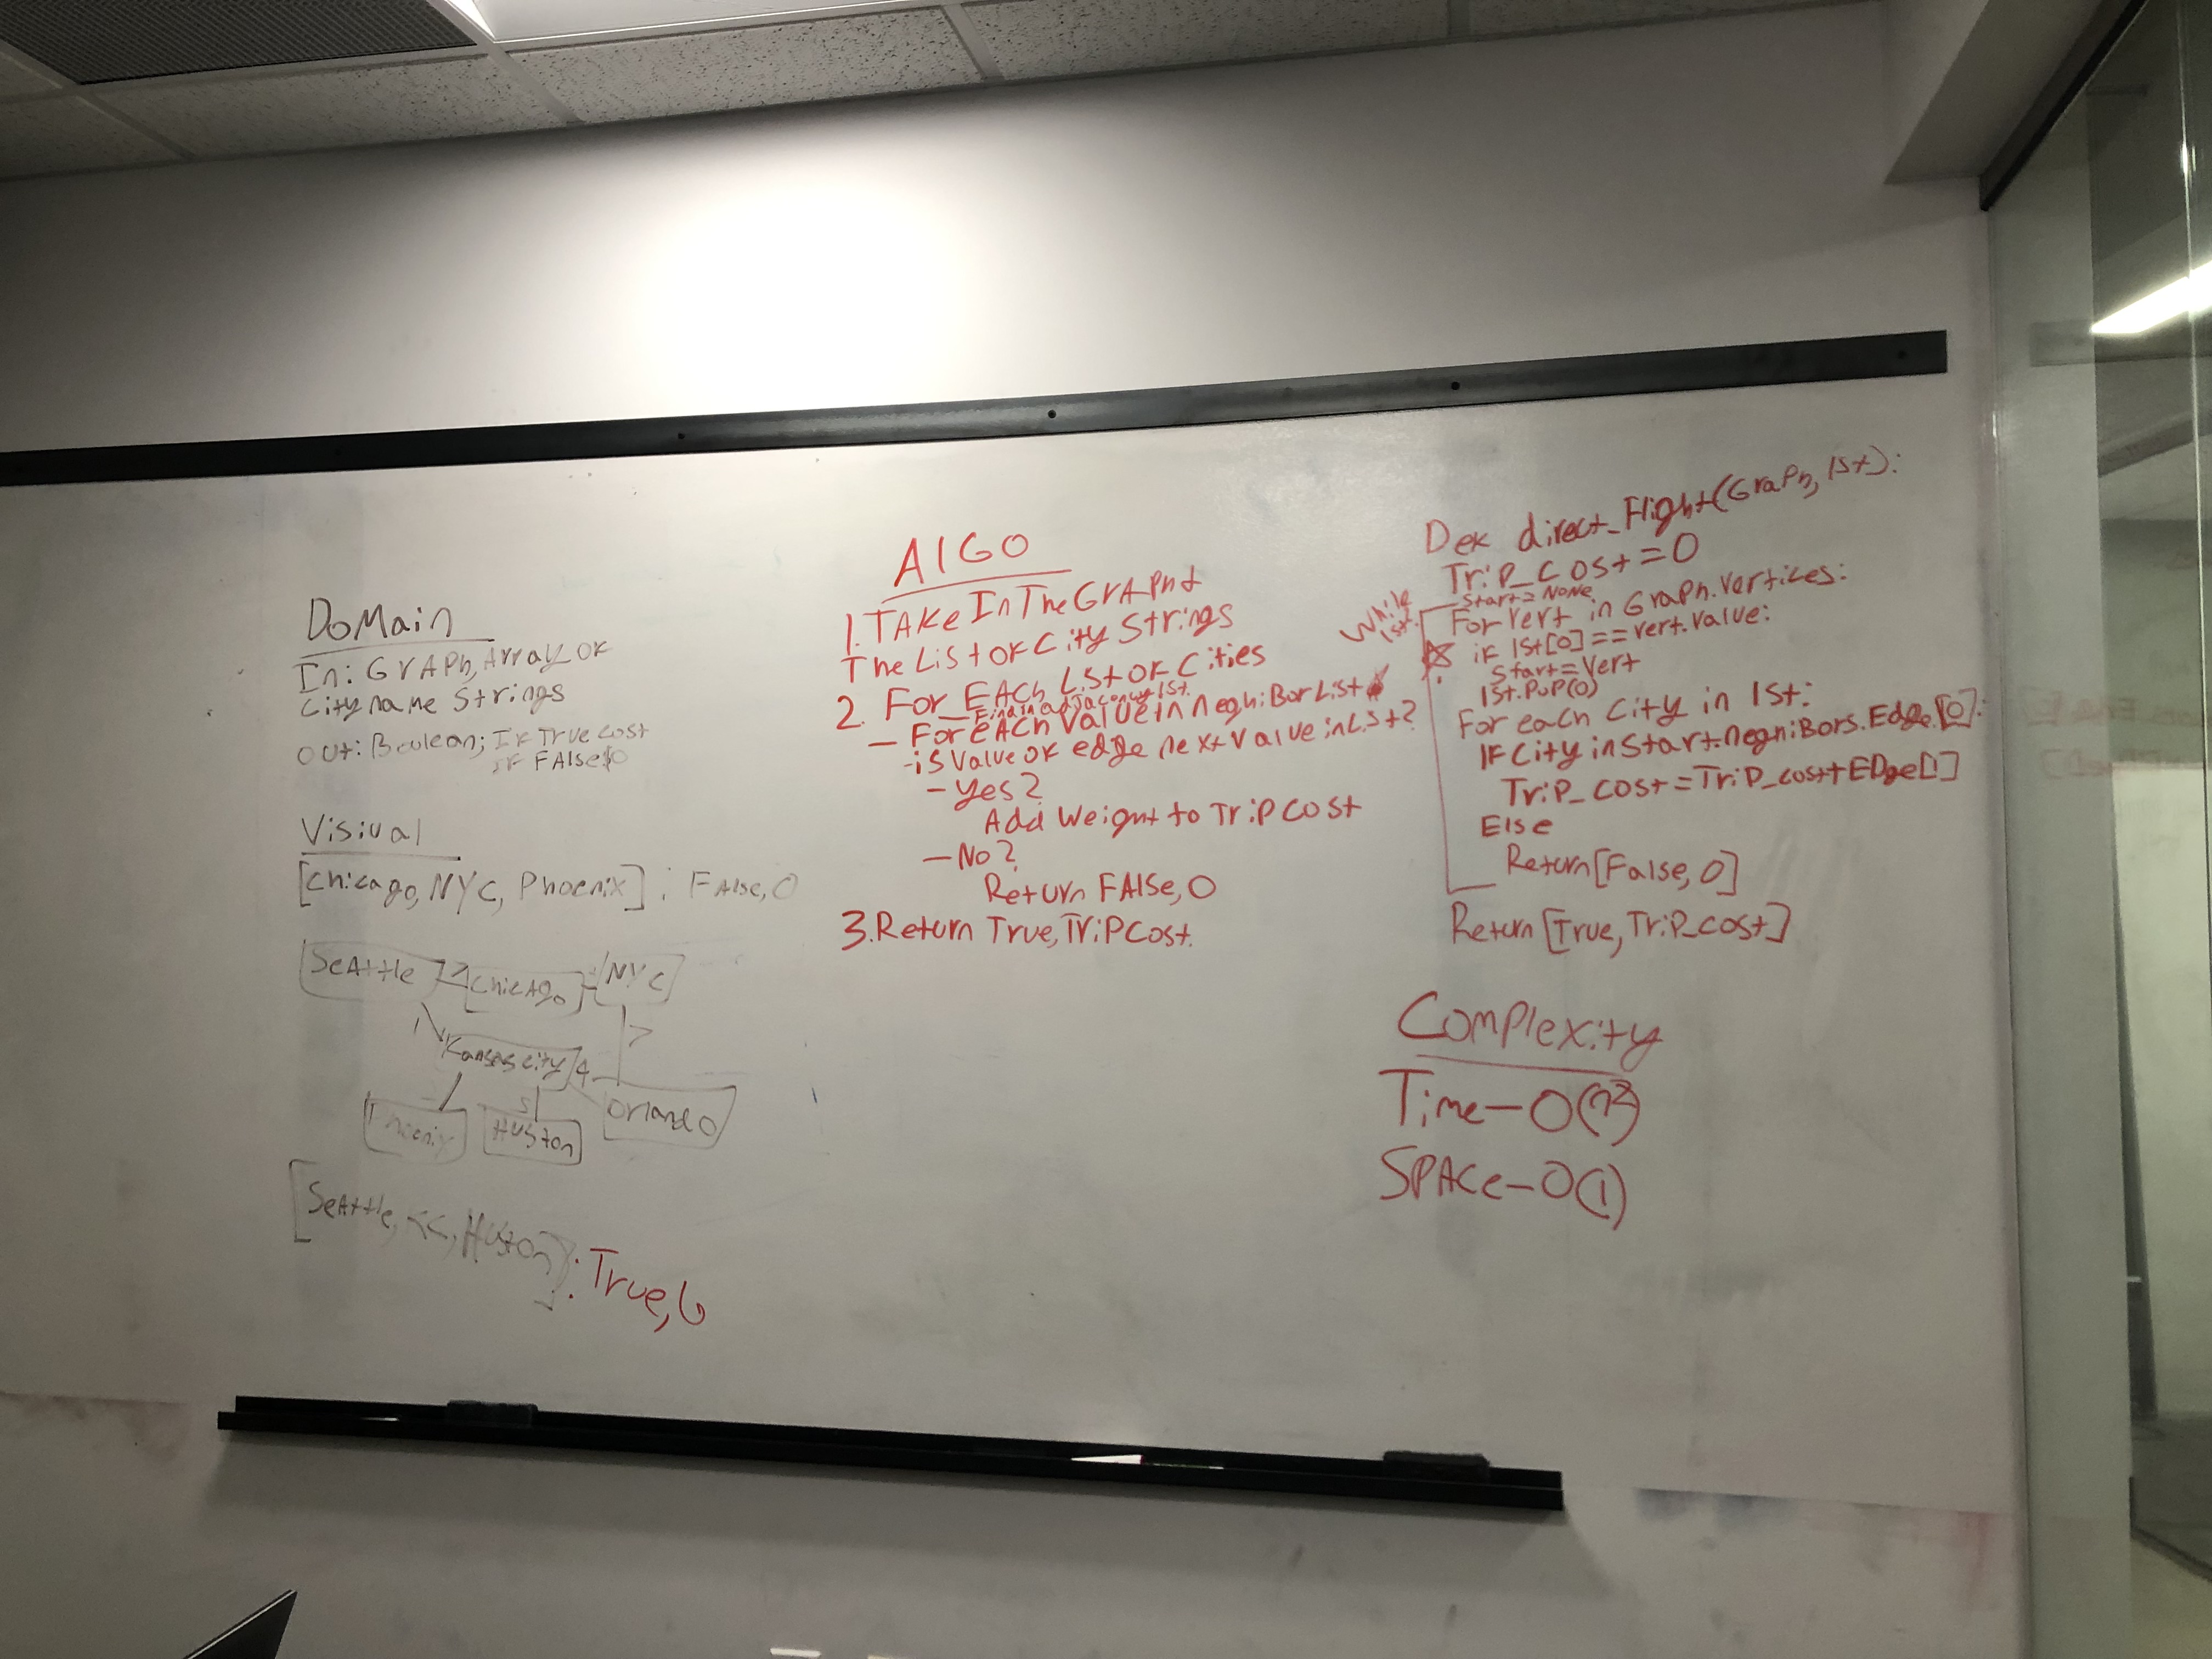 DoMain
In: GrAPh, Array oF
City name Strings
OUt: Boulean; IF True cost
IF FAlse $0
Visiual
[Chicago, NYC, Phoenix] : FAlse, 0
SeAttle 2 Chicago NYC
1 7
Kansas city 4
5
Phoenix HUSton Orlando
[SeAttle, KC, HUSton] : True, 6
AlGO
1. TAKe In The GrAPh &
The List oF City Strings
2. For EAch List oF Cities
- Find in adjacency lst.
- For eAch Value in neghiBor List
- is Value oF edge next Value in List?
- Yes?
Add Weight to Trip Cost
- No?
Return FAlse, 0
3. Return True, TriP Cost.
DeF direct_Flight(GraPh, lst):
TriP_Cost = 0
Start = None
While lst:
For Vert in GraPh.Vertices:
iF lst[0] == Vert.Value:
Start = Vert
lst.PoP(0)
For each City in lst:
IF City in Start.neghiBors.Edge[0]:
TriP_Cost = TriP_cost + EDge[1]
Else
Return [False, 0]
Return [True, TriP_cost]
ComPlexity
Time - O(n²)
SPAce - O(1)